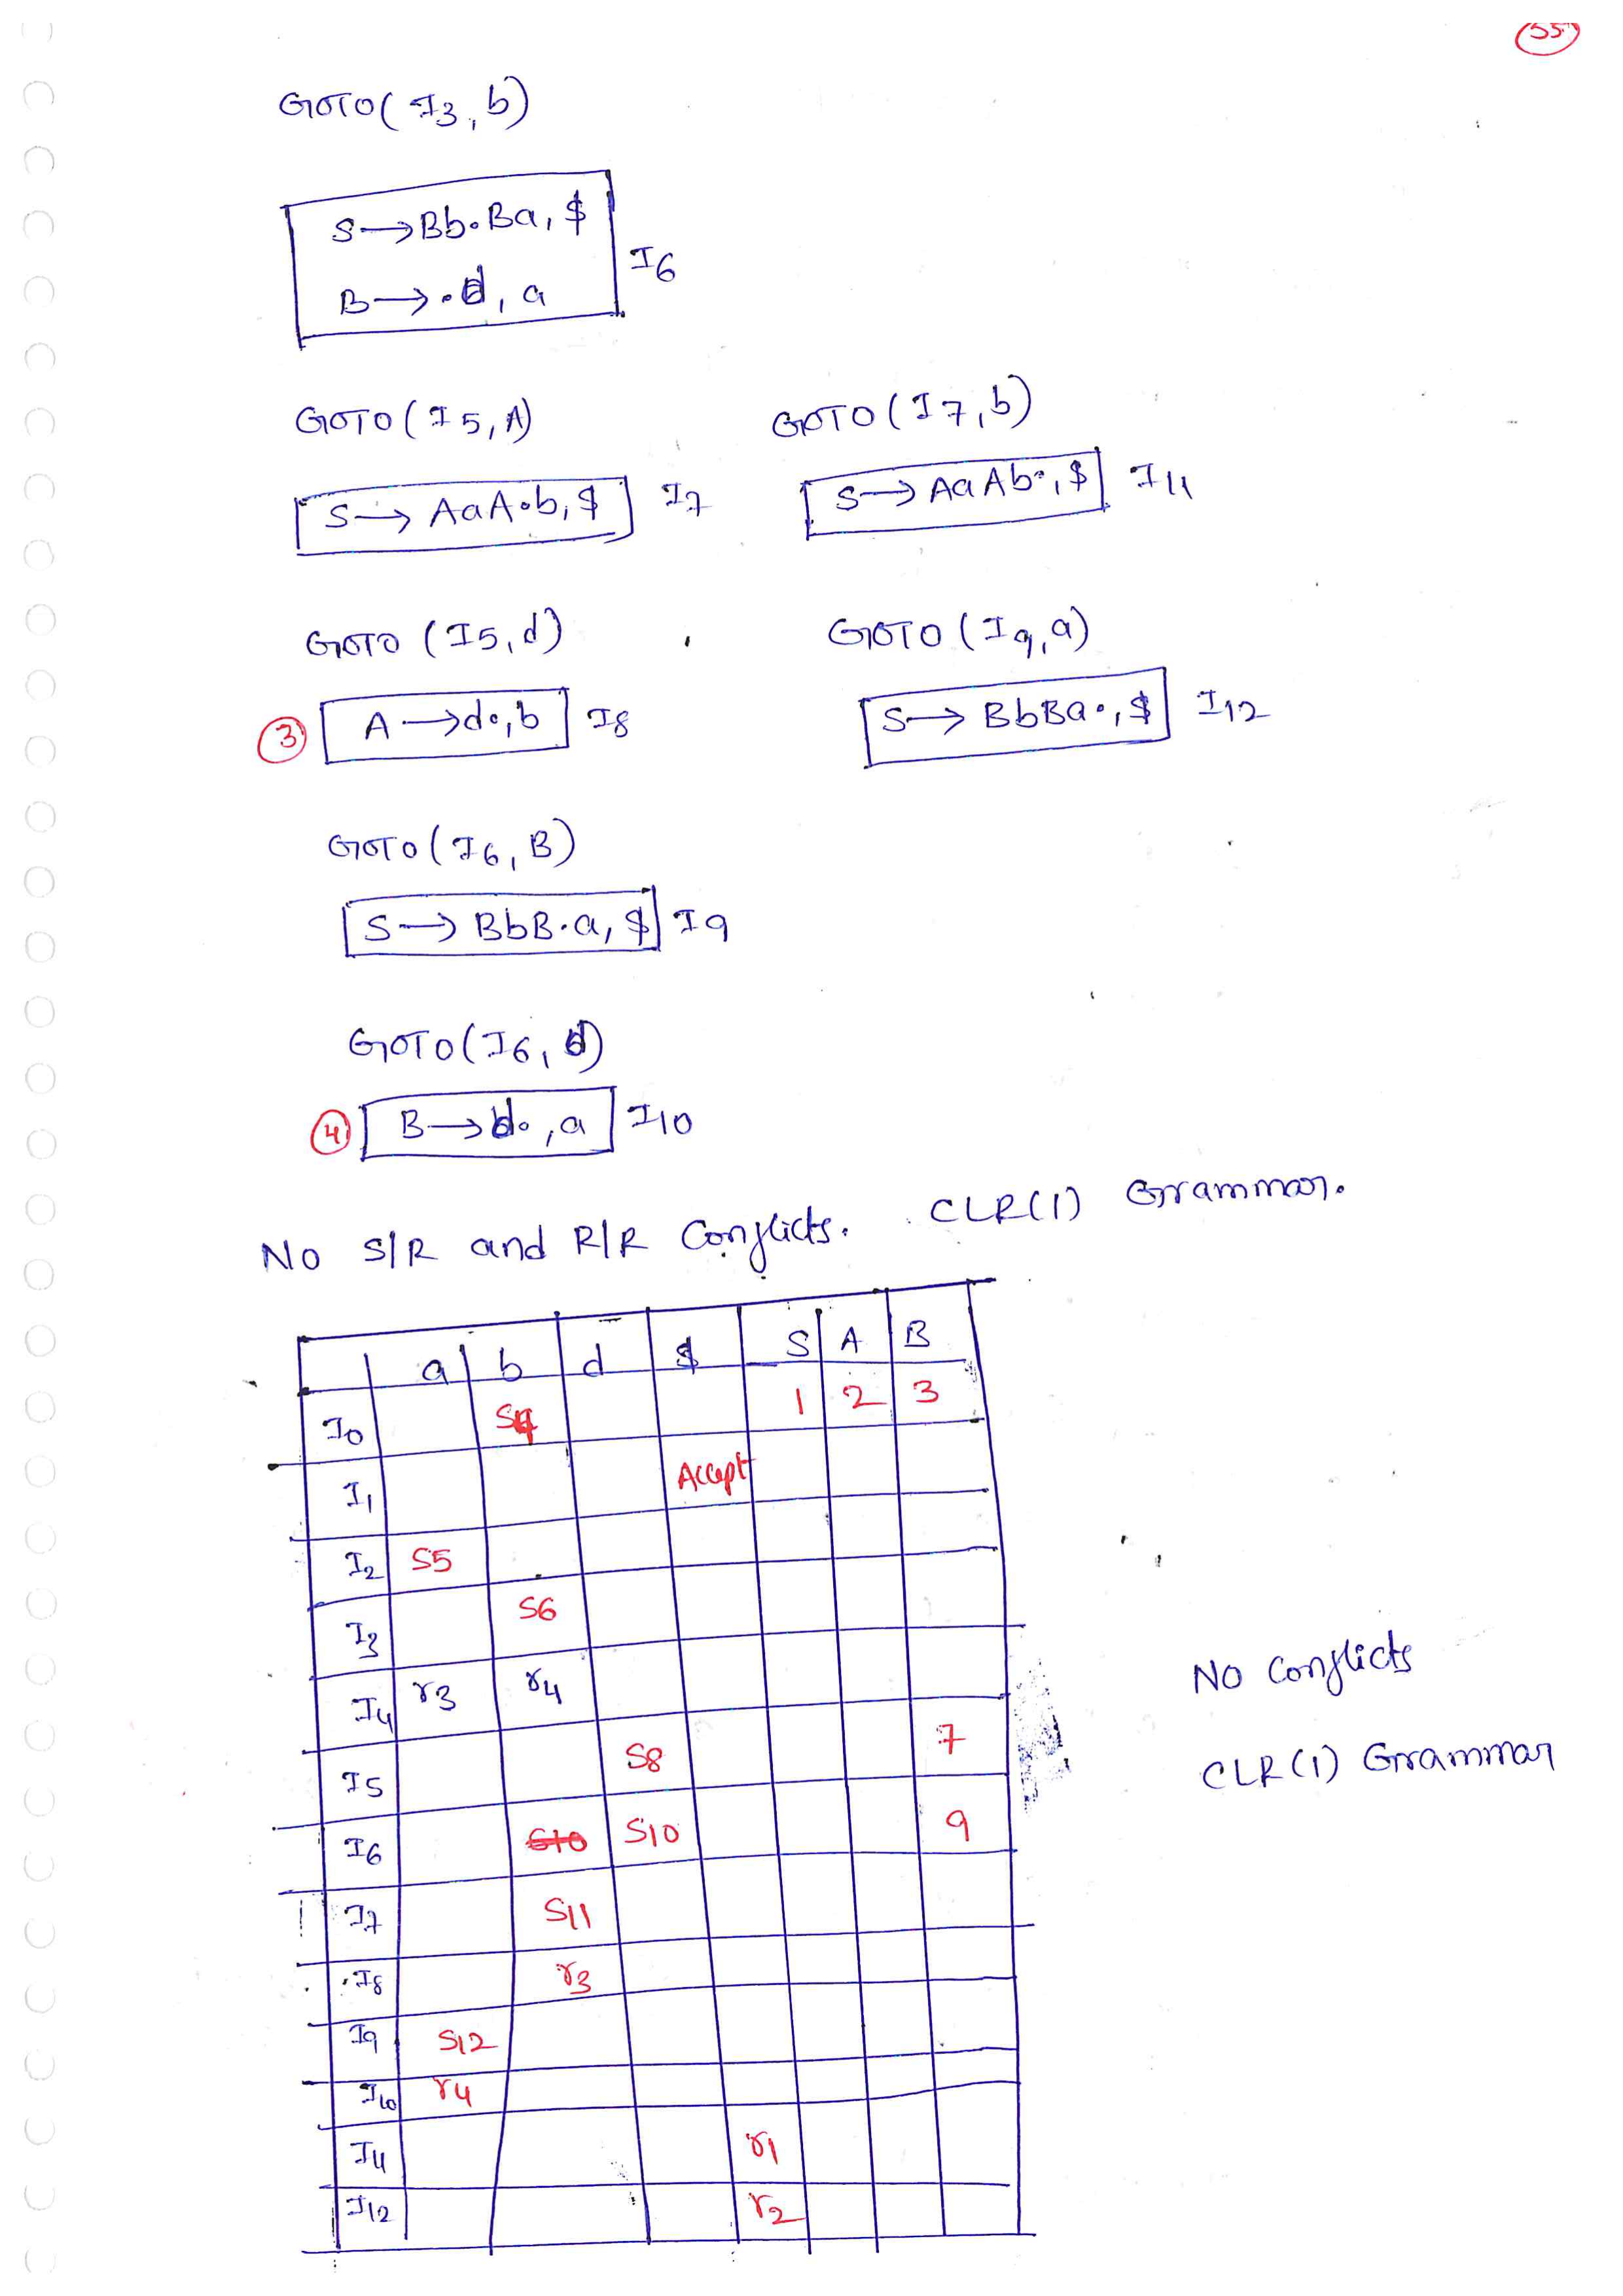 55
GOTO(I3, b)
S→Bb.Ba, $
B→.d, a
I6
GOTO(I5, A)
S→AaA.b, $
I7
GOTO(I7, b)
S→AaAb., $
I11
GOTO(I5, d)
3
A→d., b
I8
GOTO(I9, a)
S→BbBa., $
I12
GOTO(I6, B)
S→BbB.a, $
I9
GOTO(I6, d)
4
B→d., a
I10
No S/R and R/R Conflicts. CLR(1) Grammar.
a b d $ S A B
I0 S4 1 2 3
I1 Accept
I2 S5
I3 S6
I4 r3 r4
I5 S8 7
I6 S10 S10 9
I7 S11
I8 r3
I9 S12
I10 r4
I11 r1
I12 r2
No conflicts
CLR(1) Grammar